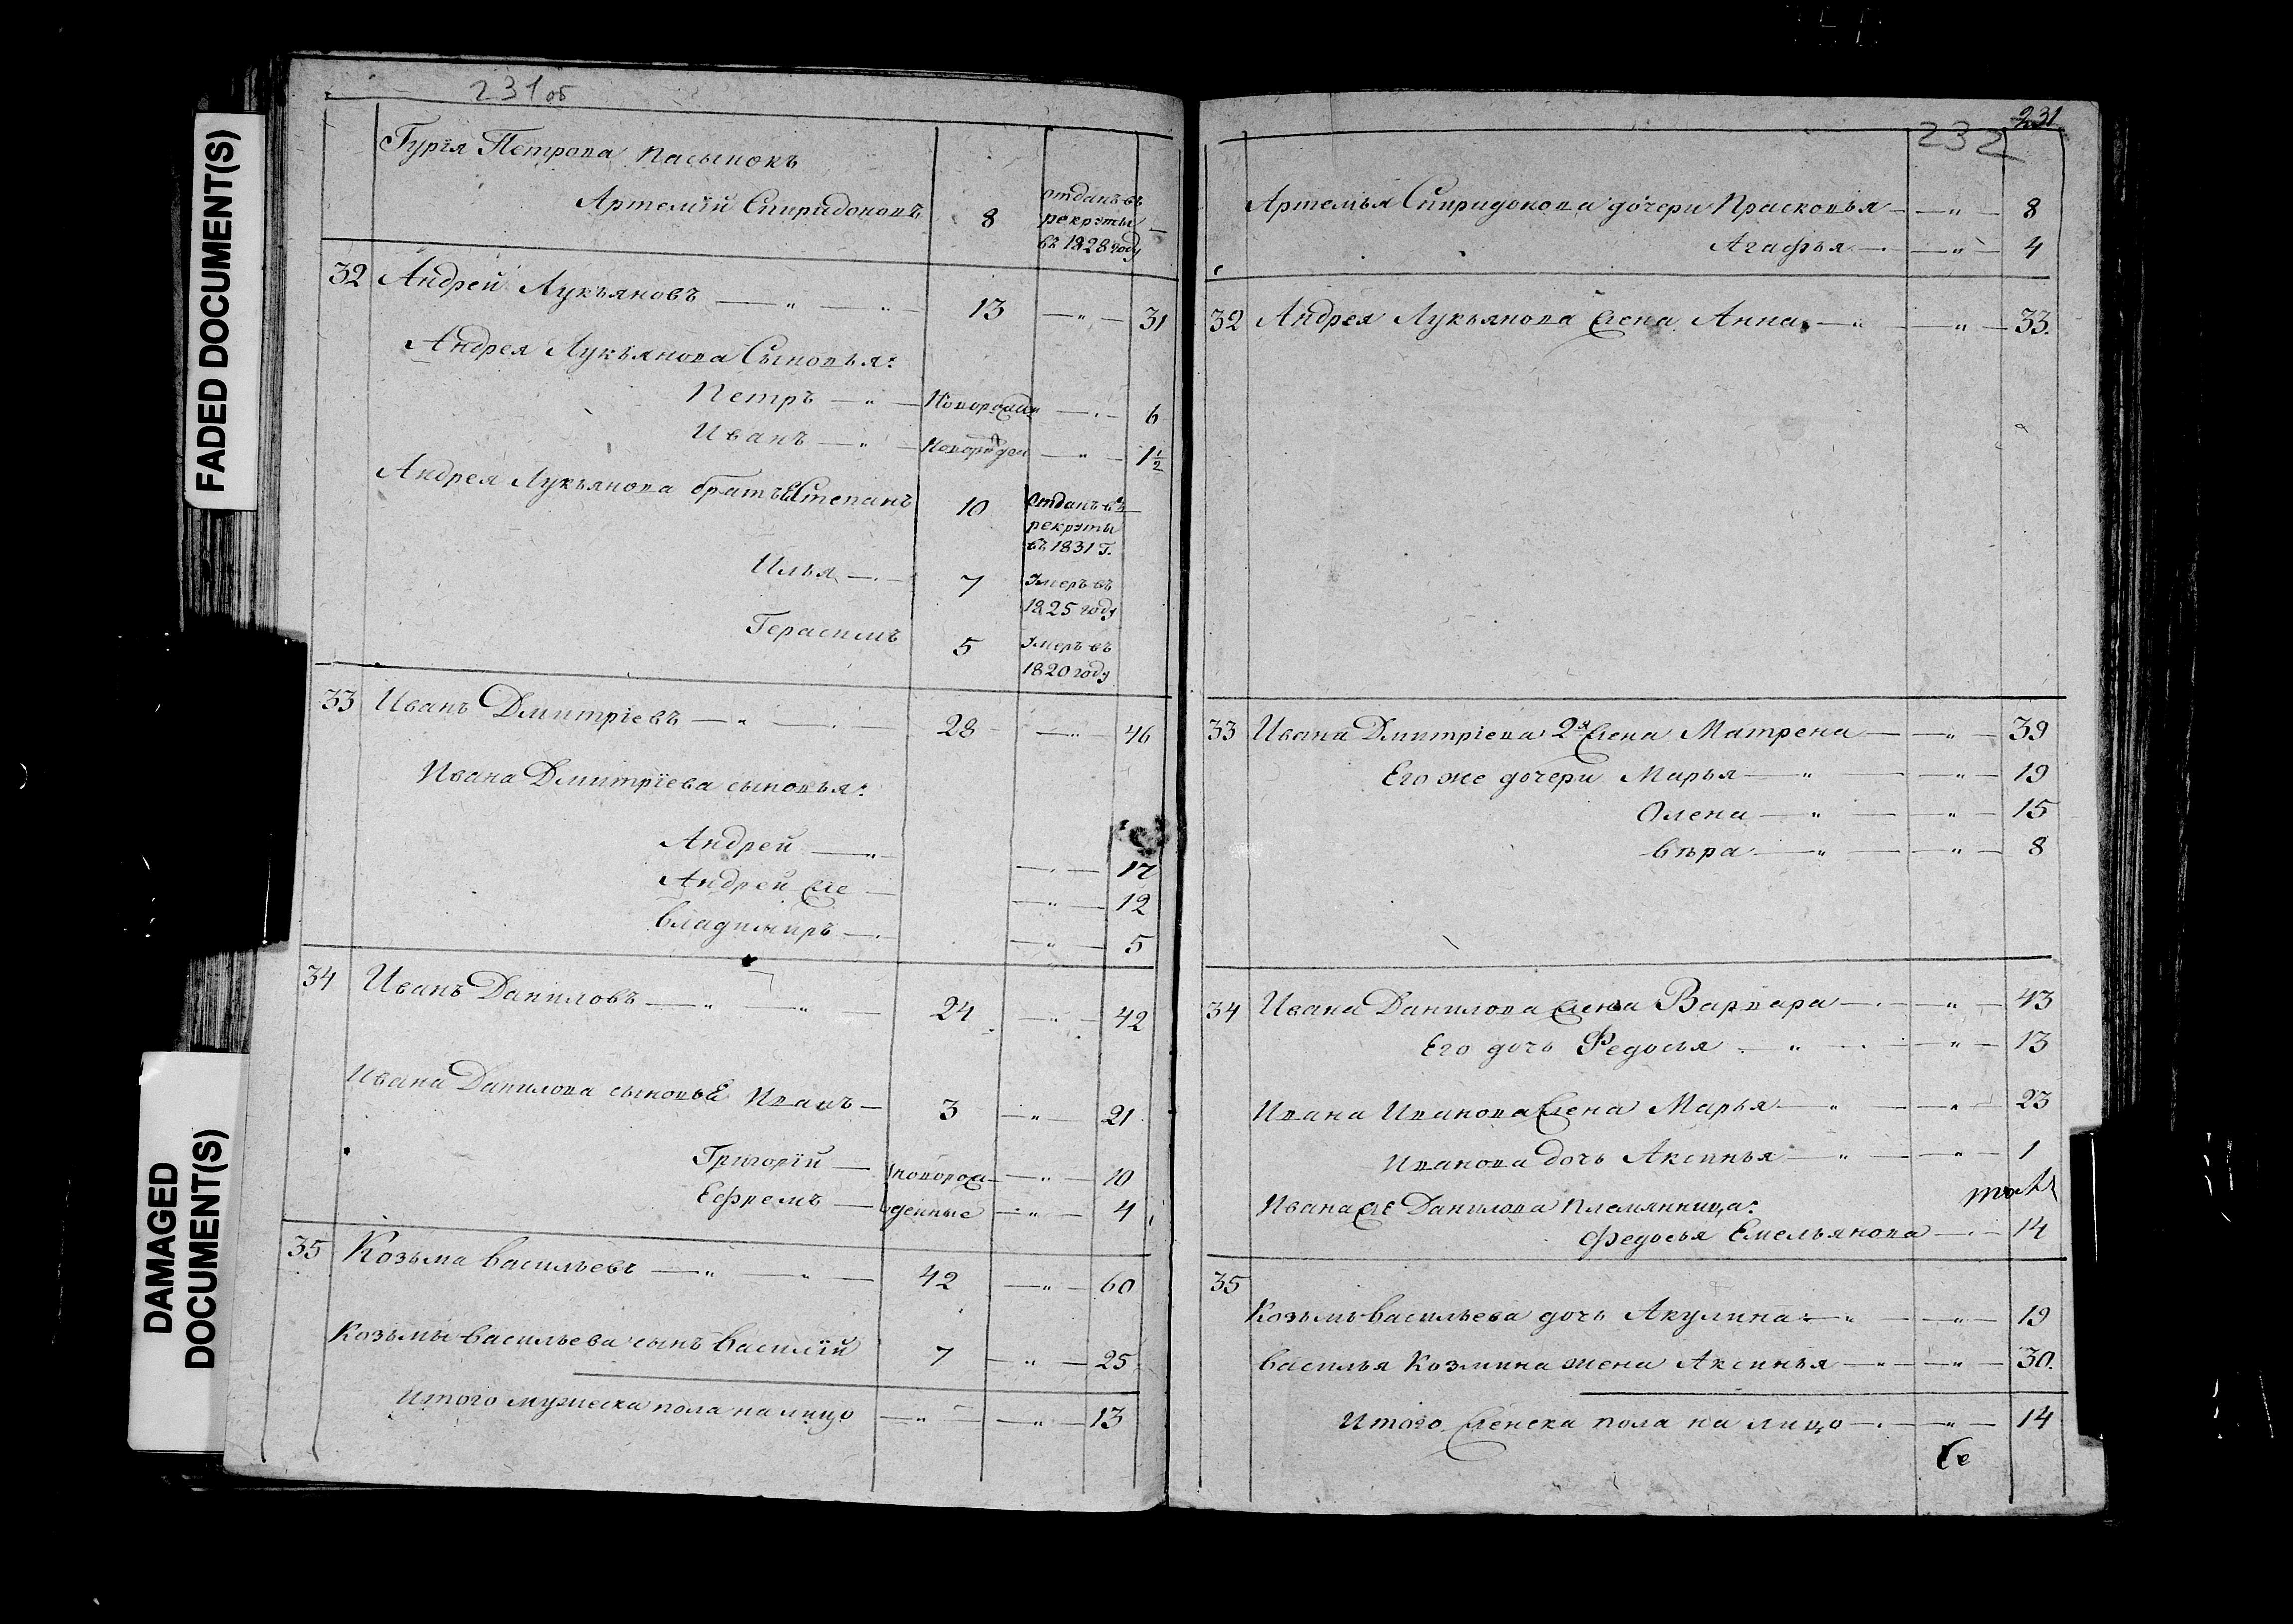 FADED DOCUMENT(S)
DAMAGED
DOCUMENT(S)
231 об
Гурія Петрова пасынокъ
Артемій Спиридоновъ 8 отданъ въ
рекруты —
въ 1828 году
32 Андрей Лукьяновъ — „ — „ — 13 — „ — 31
Андрея Лукьянова Сыновья:
Петръ — „ — Новорожден — „ — 6
Иванъ — „ — Новорожден — „ — 1½
Андрея Лукьянова братья Степанъ 10 Отданъ въ
рекруты
въ 1831 г.
Илья — 7 Умеръ въ
1825 году
Герасимъ 5 Умеръ въ
1820 году
33 Иванъ Дмитріевъ — „ — 28 — „ — 46
Ивана Дмитріева сыновья:
Андрей — „ — „ — 17
Андрей же — — „ — 12
Владимиръ — — „ — 5
34 Иванъ Даниловъ — „ — „ — 24 — „ — 42
Ивана Данилова сыновья Иванъ — 3 — „ — 21
Григорій — новорож — „ — 10
Ефремъ — денные — „ — 4
35 Козьма Васильевъ — „ — „ — 42 — „ — 60
Козьмы Васильева сынъ Василій 7 — „ — 25
Итого мужеска пола на лицо — „ — — „ — 13
231
232
Артемья Спиридонова дочери Прасковья — — „ — 8
Агафья — — „ — 4
32 Андрея Лукьянова жена Анна — „ — „ — 33.
33 Ивана Дмитріева 2я жена Матрена — — „ — 39
Его же дочери Марья — „ — — „ — 19
Олена — „ — — „ — 15
Вѣра — „ — — „ — 8
34 Ивана Данилова жена Варвара — — „ — 43
Его дочь Федосья — „ — — „ — 13
Ивана Иванова жена Марья — „ — — „ — 23
Иванова дочь Аксинья — „ — — „ — 1
Ивана же Данилова племянница:
Федосья Емельянова — — 14
35
Козьмы Васильева дочь Акулина — „ — — „ — 19
Василья Козмина жена Аксинья — „ — — „ — 30.
Итого женска пола на лицо — — „ — 14